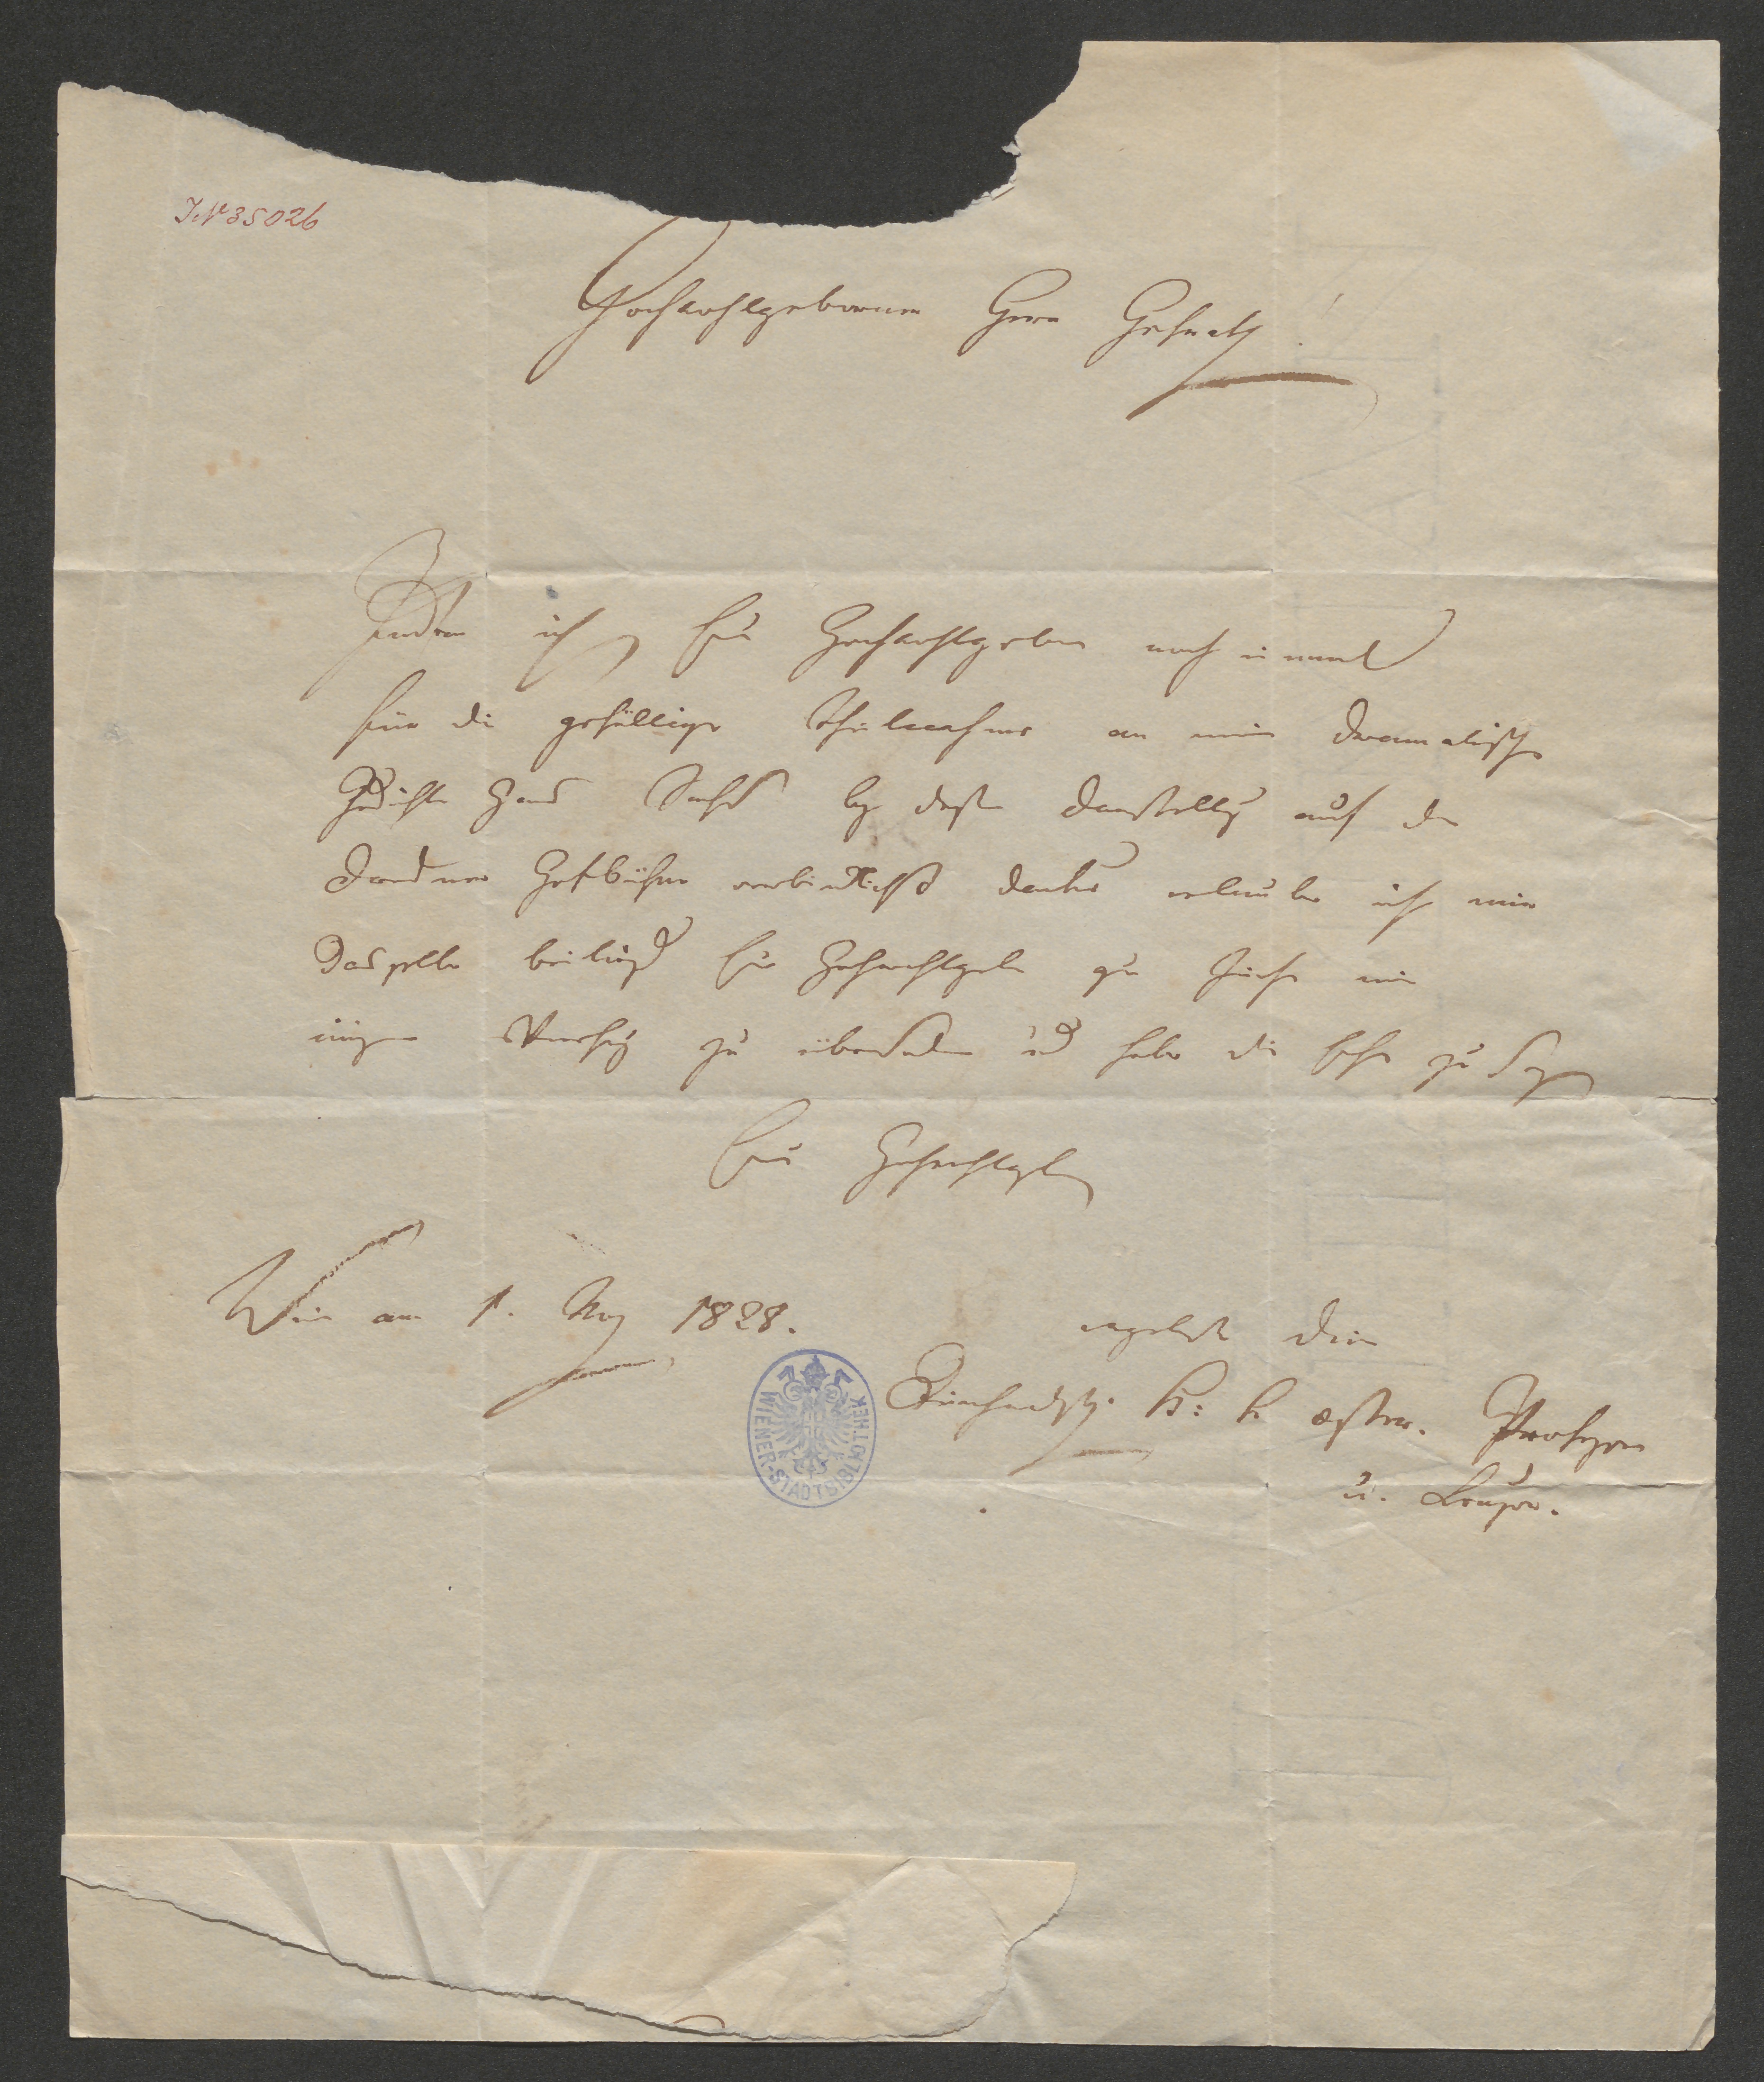 INr 35026
Hochwohlgeborner Herr Hofrath!
Indem ich Eur Hochwohlgeborn noch einmal
für die gefällige Theilnahme an mein dramatisches
Gedicht Hans Sachs bey dessen Darstellung auf der
Dresdner Hofbühne verbindlichst danke erlaube ich mir
dasselbe beiliegend Eur Hochwohlgeb zu
zu übersenden und habe die Ehre zu seyn
Eur Hochwohlgeb
Wien am 1. May 1828.
Deinhardst. K: k österr. Professor
u. Censor.
WIENER-STADTBIBLIOTHEK